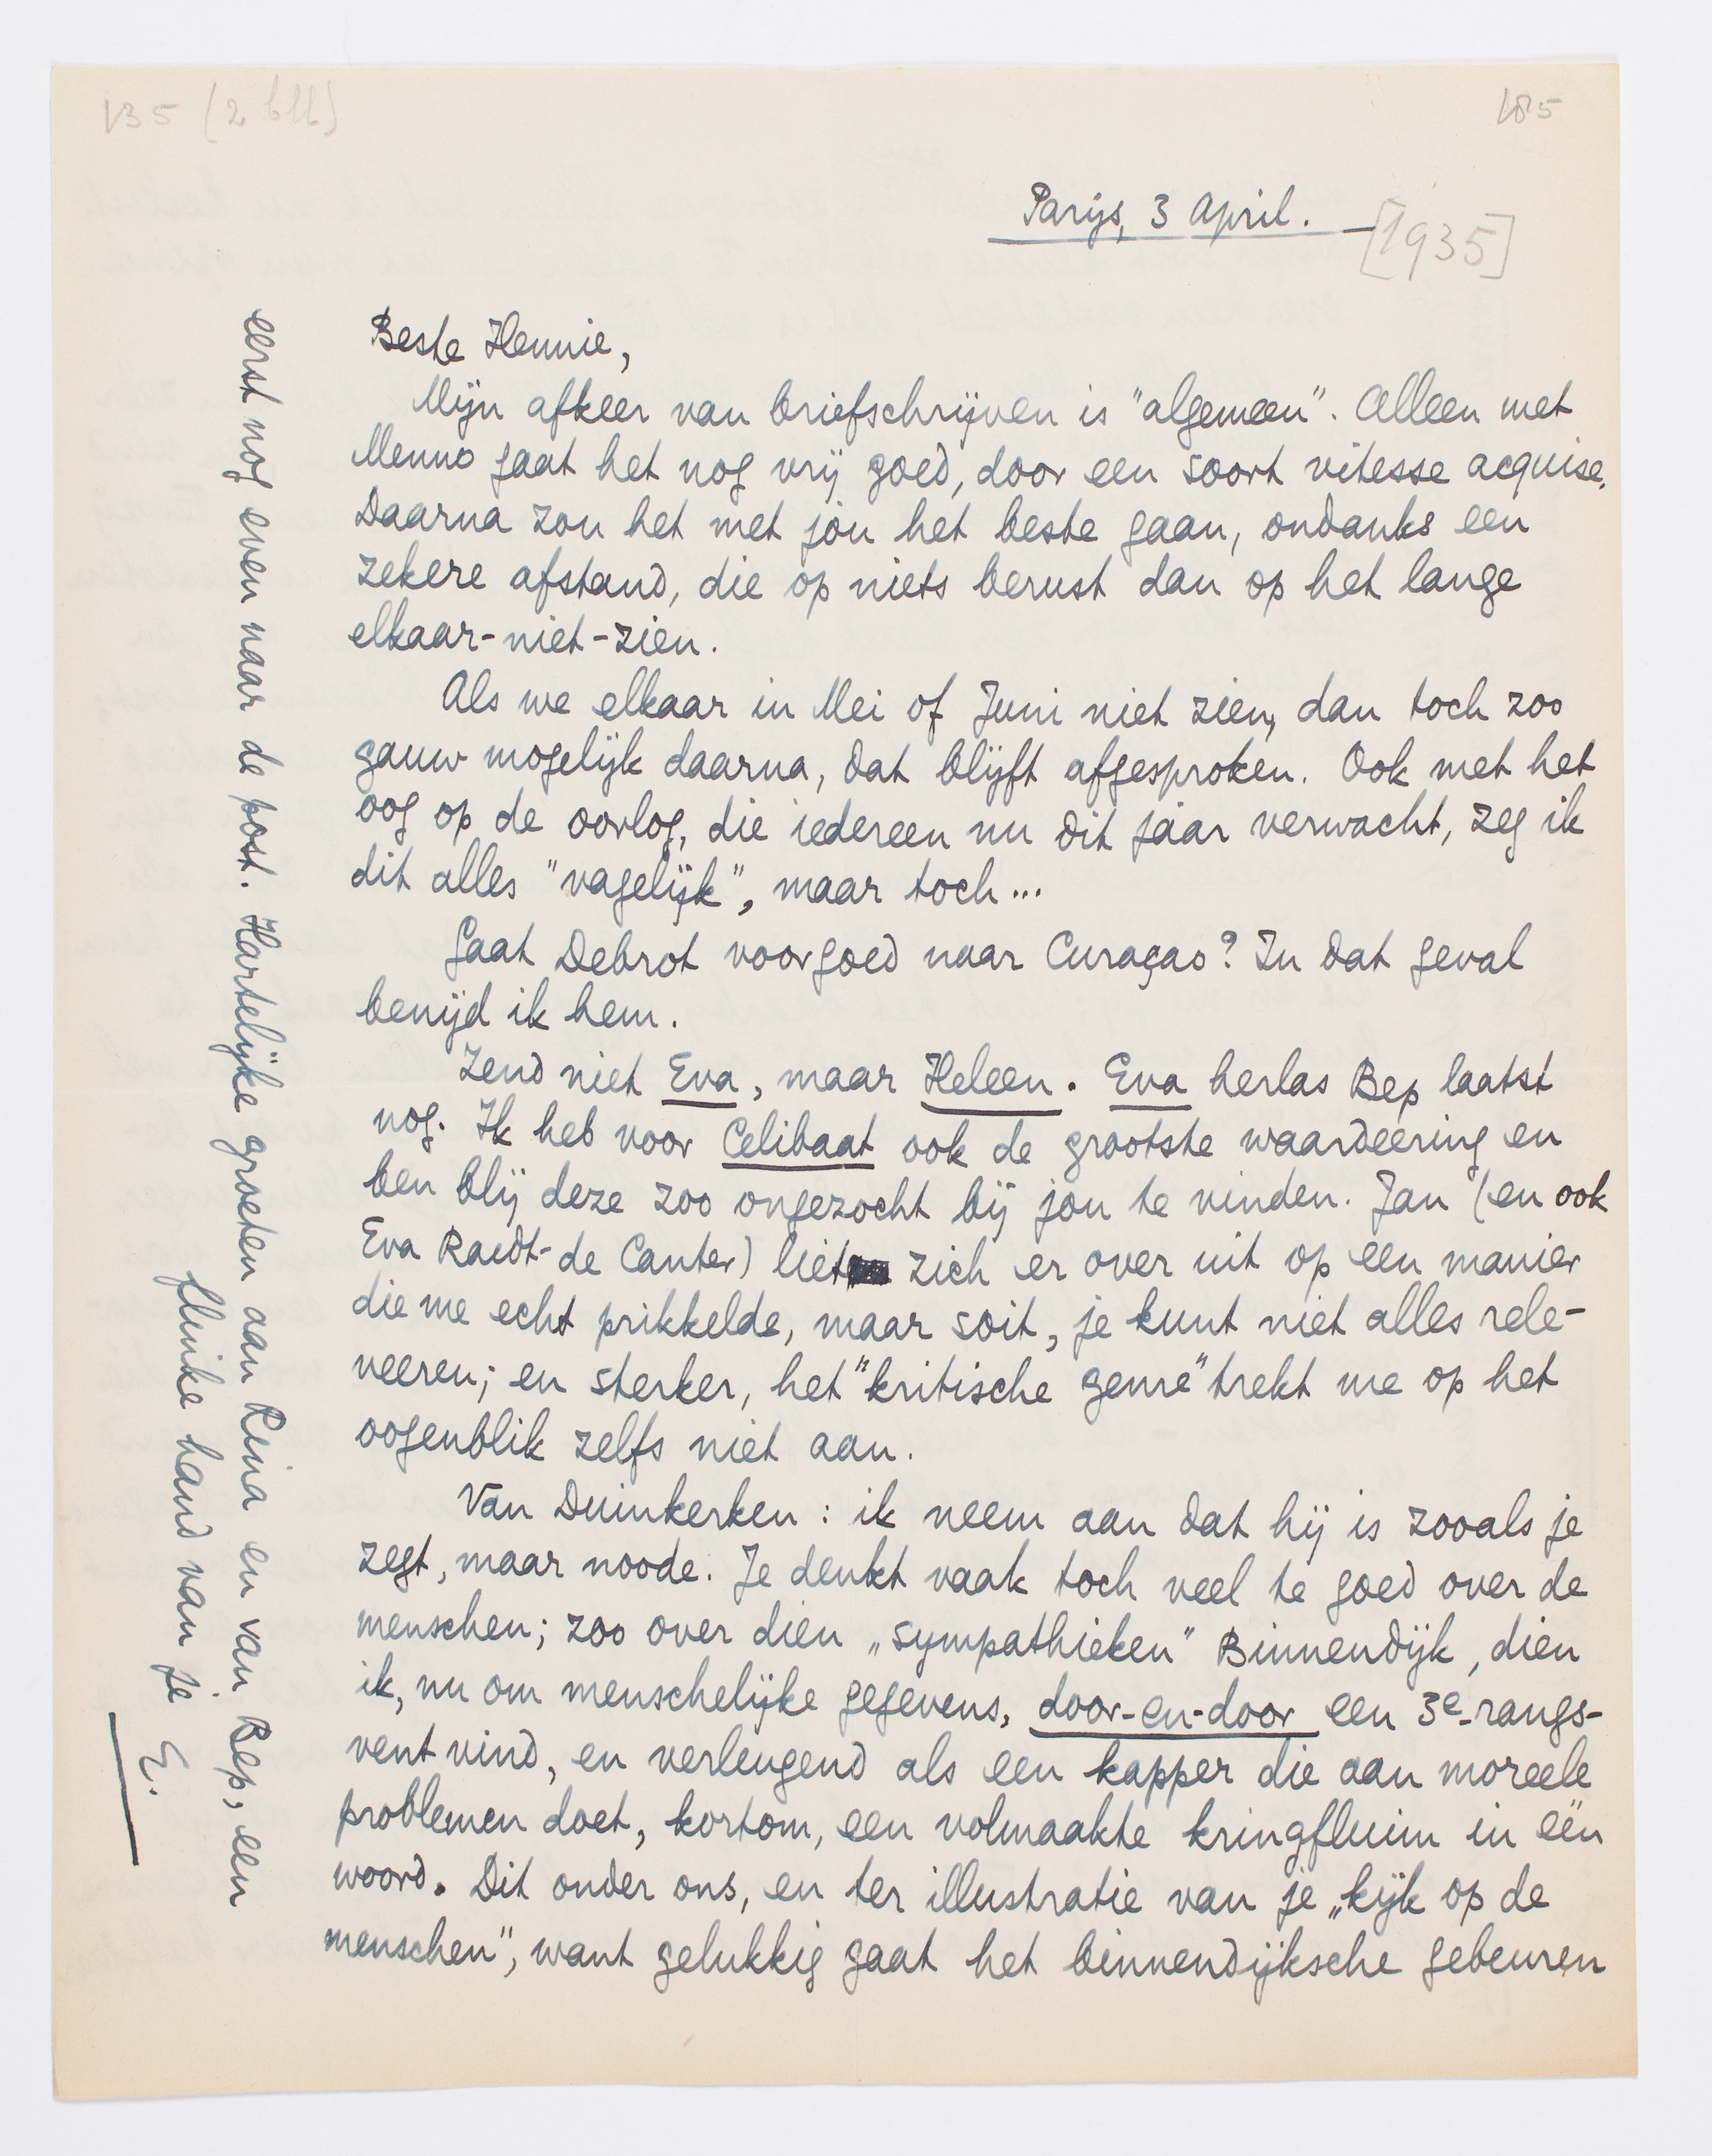 135 (2 bll)
185
Parijs, 3 April.
[1935]
Beste Hennie,
Mijn afkeer van briefschrijven is "algemeen". Alleen met
Menno gaat het nog vrij goed, door een soort vitesse acquise.
Daarna zou het met jòu het beste gaan, ondanks een
zekere afstand, die op niets berust dan op het lange
elkaar-niet-zien.
Als we elkaar in Mei of Juni niet zien, dan toch zoo
gauw mogelijk daarna, dat blijft afgesproken. Ook met het
oog op de oorlog, die iedereen nu dit jaar verwacht, zeg ik
dit alles "vagelijk", maar toch...
Gaat Debrot voorgoed naar Curaçao? In dat geval
benijd ik hem.
Zend niet Eva, maar Heleen. Eva herlas Bep laatst
nog. Ik heb voor Celibaat ook de grootste waardeering en
ben blij deze zoo ongezocht bij jou te vinden. Jan (en ook
Eva Raedt-de Canter) liet zich er over uit op een manier
die me echt prikkelde, maar soit, je kunt niet alles rele-
veeren; en sterker, het "kritische genre" trekt me op het
oogenblik zelfs niet aan.
Van Duinkerken: ik neem aan dat hij is zooals je
zegt, maar noode. Je denkt vaak toch veel te goed over de
menschen; zoo over dien „sympathieken" Binnendijk, dien
ik, nu om menschelijke gegevens, door-en-door een 3e-rangs-
vent vind, en verleugend als een kapper die aan moreele
problemen doet, kortom, een volmaakte kringfluim in één
woord. Dit onder ons, en ter illustratie van je „kijk op de
menschen", want gelukkig gaat het binnendijksche gebeuren
eerst nog even naar de post. Hartelijke groeten aan Rina en van Bep, een
flinke hand van je
E.